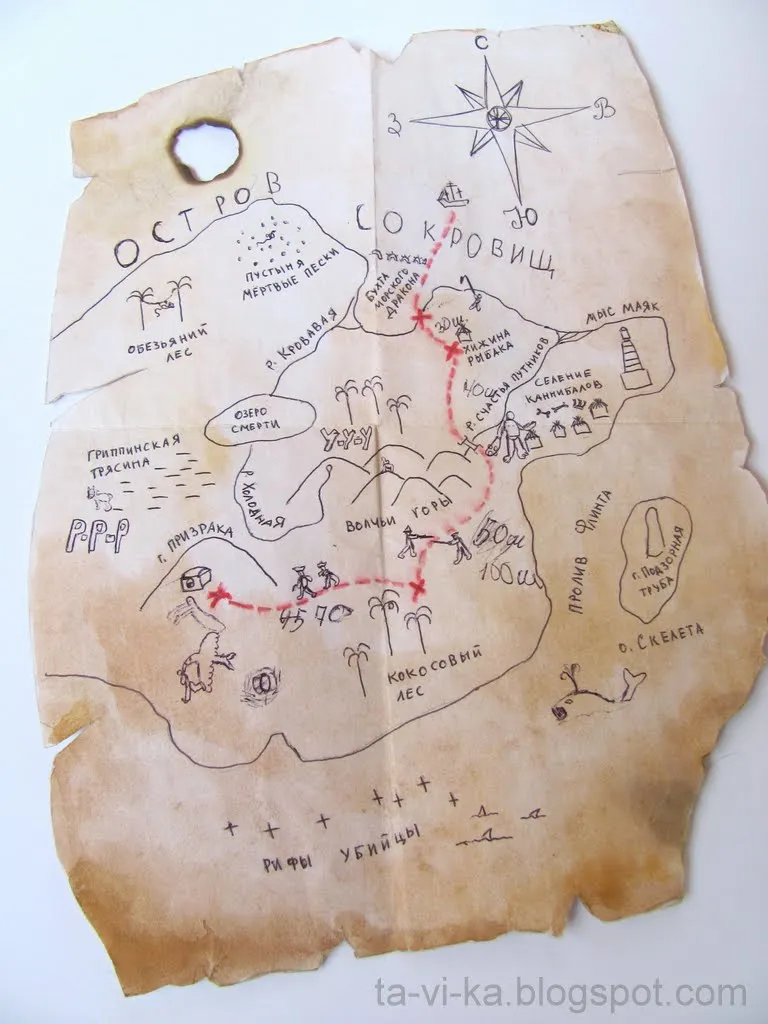 С
З
В
Ю
ОСТРОВ СОКРОВИЩ
ПУСТЫНЯ
МЕРТВЫЕ ПЕСКИ
БУХТА
МОРСКОГО
ДРАКОНА
ОБЕЗЬЯНИЙ
ЛЕС
Р. КРОВАВАЯ
30 ш.
ХИЖИНА
РЫБАКА
МЫС МАЯК
40 ш
Р. СЧАСТЬЯ ПУТНИКОВ
СЕЛЕНИЕ
КАННИБАЛОВ
ОЗЕРО
СМЕРТИ
У-У-У
ГРИППИНСКАЯ
ТРЯСИНА
Р. ХОЛОДНАЯ
ВОЛЧЬИ ГОРЫ
Р-Р-Р
г. ПРИЗРАКА
50 ш
100 ш
ПРОЛИВ ФЛИНТА
г. ПОДЗОРНАЯ
ТРУБА
45 70
О. СКЕЛЕТА
КОКОСОВЫЙ
ЛЕС
РИФЫ УБИЙЦЫ
ta-vi-ka.blogspot.com